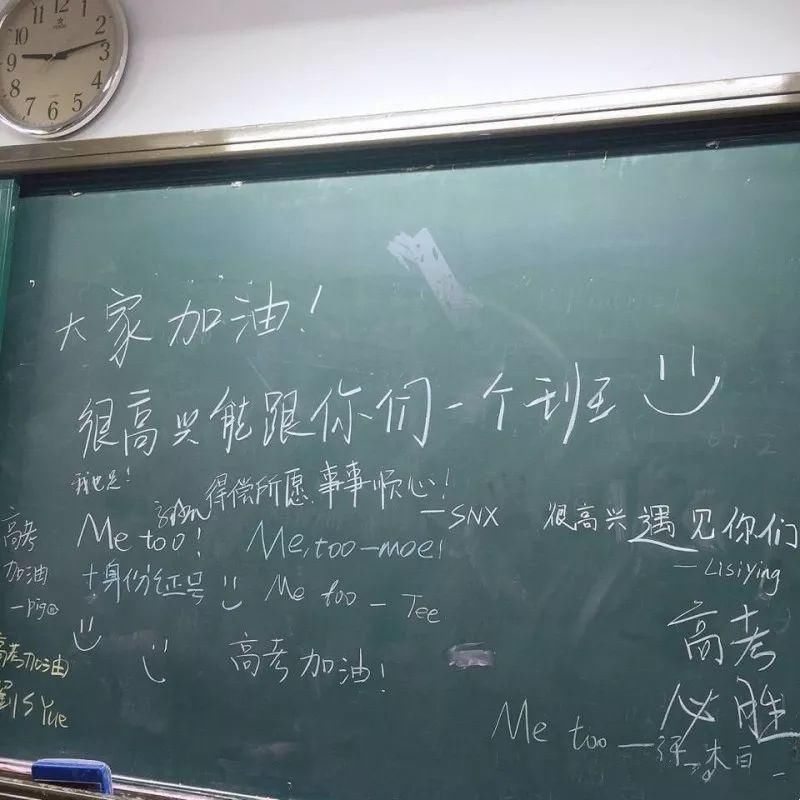 大家加油!
很高兴能跟你们一个班
我也是!
得偿所愿 事事顺心!
—SNX
很高兴遇见你们
—Lisiying
高考
加油
—pig
Me too!
Me too—moe!
+身份证号
Me too — Tee
高考加油
Yue
高考加油!
高考
必胜
Me too —
12
1
2
3
4
5
6
7
8
9
10
11